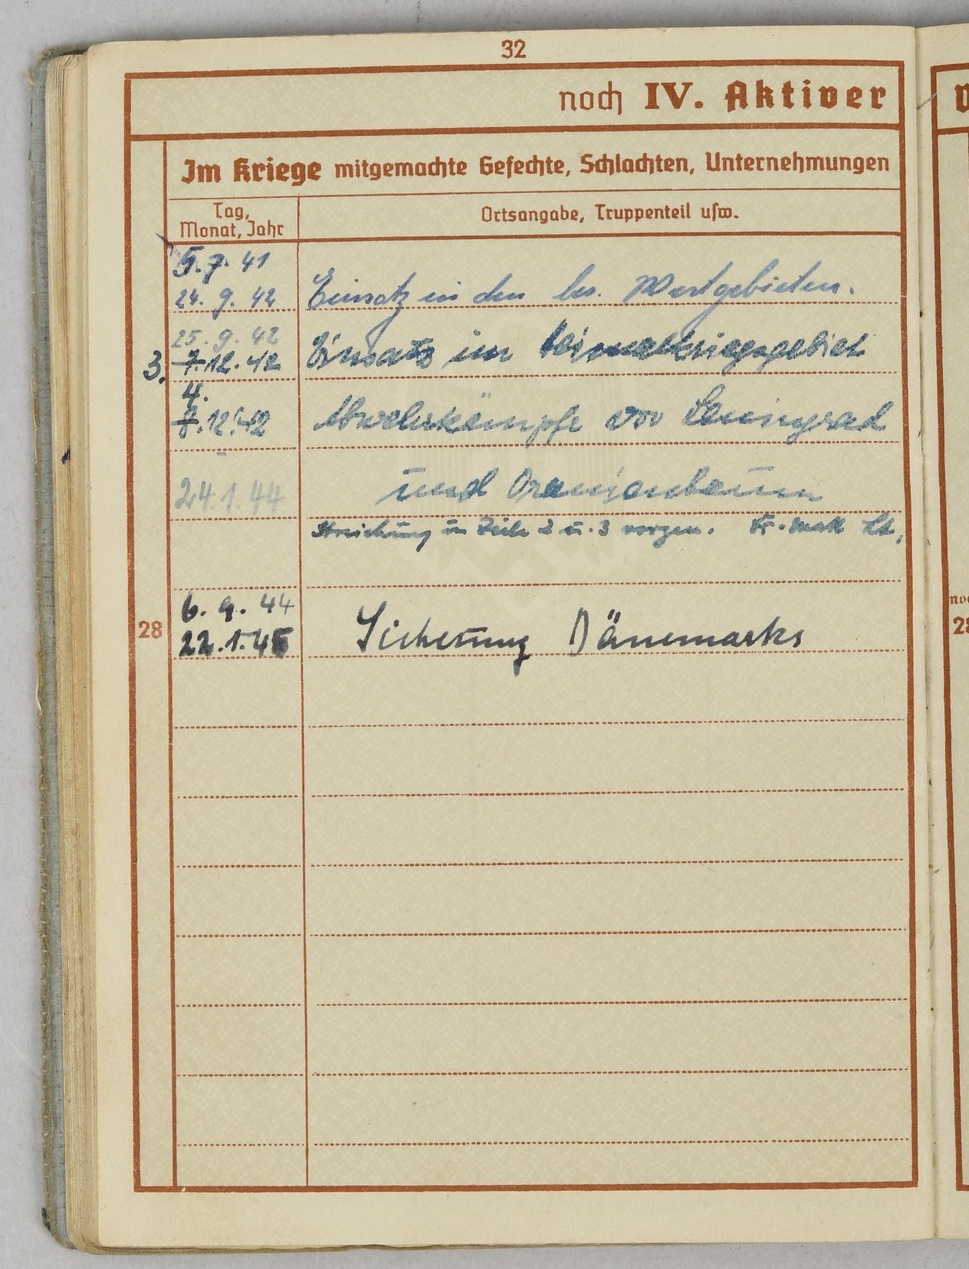 32
noch IV. Aktiver
Im Kriege mitgemachte Gefechte, Schlachten, Unternehmungen
Tag,
Monat, Jahr
Ortsangabe, Truppenteil usw.
5.7.41
24.9.42 Einsatz in den bes. Westgebieten.
25.9.42
3. 7.12.42 Einsatz im Heimatkriegsgebiet
4.
8.12.42 Abwehrkämpfe vor Leningrad
24.1.44 und Oranienbaum
Streichung in Zeile 2 u. 3 vorgen. Lt.
6.9.44
28
22.1.45 Sicherung Dänemarks
28